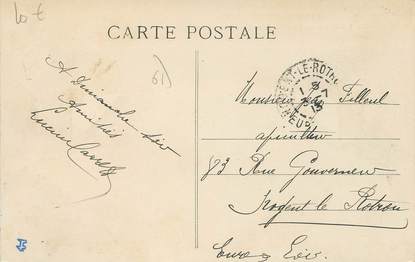 10 €
CARTE POSTALE
61)
A Dimanche
Amitiés
NOGENT-LE-ROTROU
EURE
Monsieur Filleul
apiculteur
83 Rue Gouverneur
Nogent le Rotrou
Eure & Loir